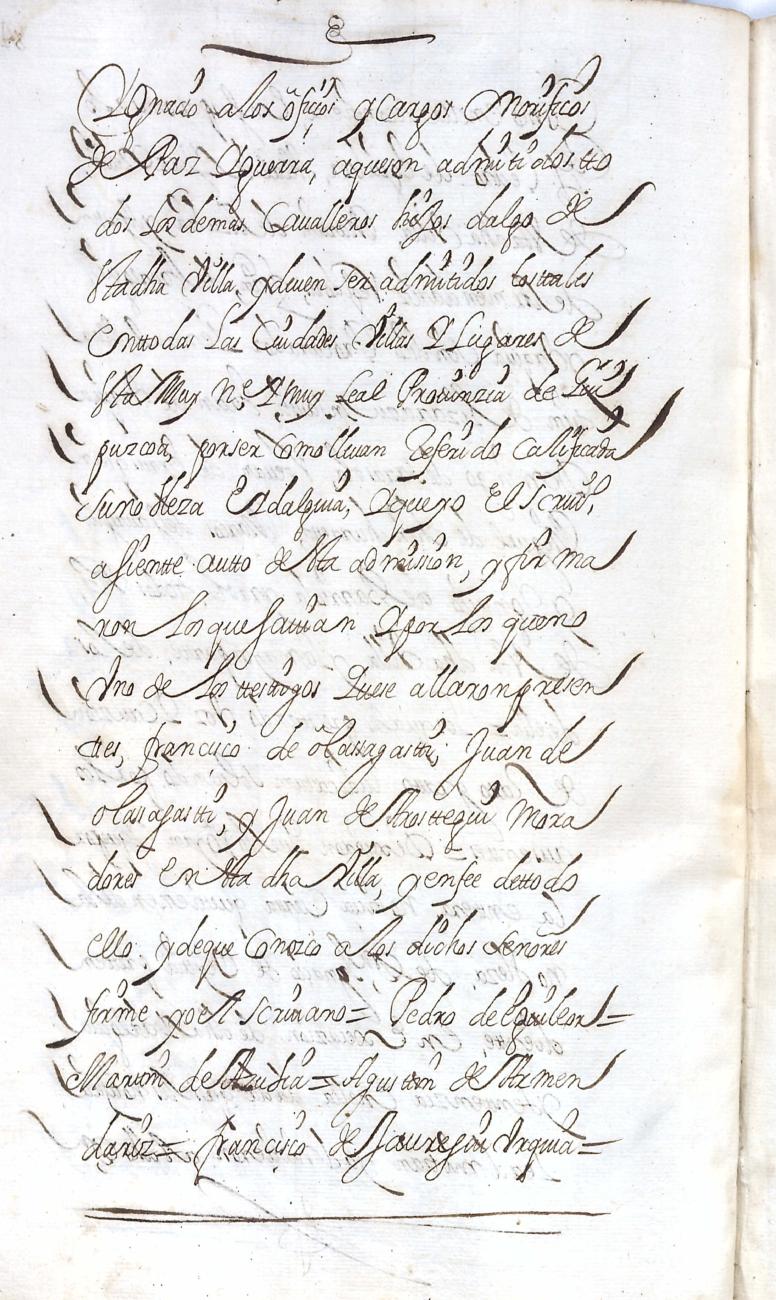 Ygnacio alos ofiçios y Cargos Onorificos
de Paz Yguerra, aqueson admitidos tto
dos los demas Cavalleros hijos dalgo de
sta dha Villa, y deven ser admitidos los ttales
en ttodas Las Ciudades Villas Y Lugares de
sta Muy N.e Y muy Leal Provinzia de Gui
puzcoa, por ser Como llevan Referido Calificada
su no bleza E Ydalguia, Y que yo El scrivo.
asientte autto de sta admission, y firma
ron Los que savian Y por Los que no
Vno de Los ttestigos Que se allaron presen
ttes, francisco de olassagastti, Juan de
olasagastti, y Juan de Arosttegui Mora
dores En sta dha Villa, y enfee de ttodo
ello y de que Conozco a Los dichos señores
firme yo el scrivano = Pedro de Eguileor =
Martin de = Agustin de Armen
dariz = francisco de Jauregui Vrquia =